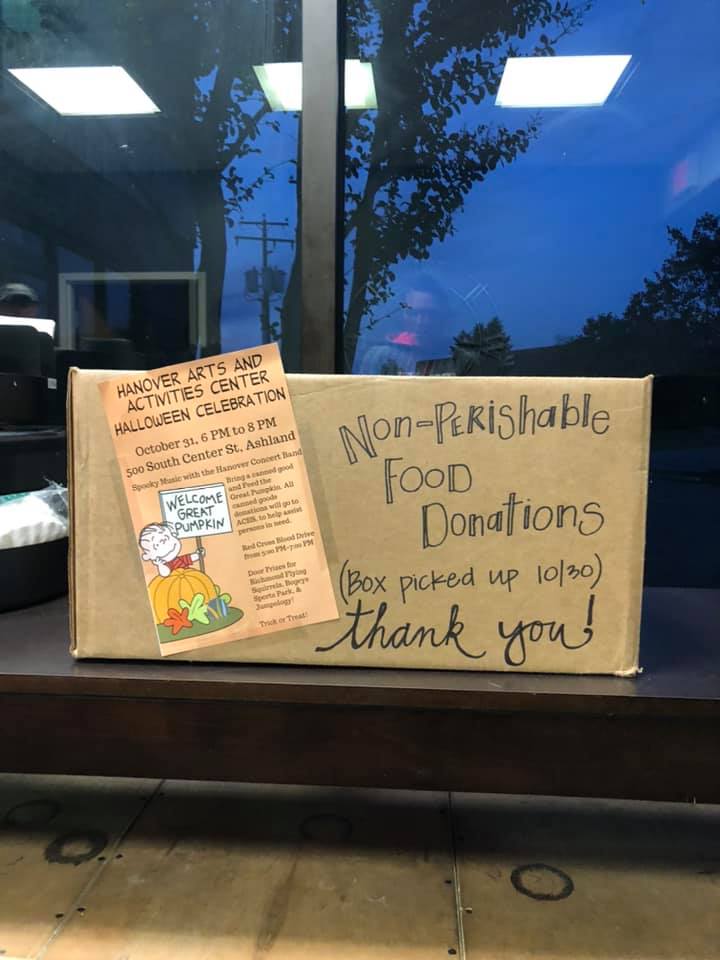 HANOVER ARTS AND
ACTIVITIES CENTER
HALLOWEEN CELEBRATION
October 31, 6 PM to 8 PM
500 South Center St, Ashland
Spooky Music with the Hanover Concert Band
Bring a canned good
and Feed the
Great Pumpkin. All
canned goods
donations will go to
ACES, to help assist
persons in need.
WELCOME
GREAT
PUMPKIN
Red Cross Blood Drive
from 5:00 PM-7:00 PM
Door Prizes for
Richmond Flying
Squirrels, Bogeys
Sports Park, &
Jumpology!
Trick or Treat!
Non-Perishable
Food
Donations
(Box picked up 10/30)
thank you!